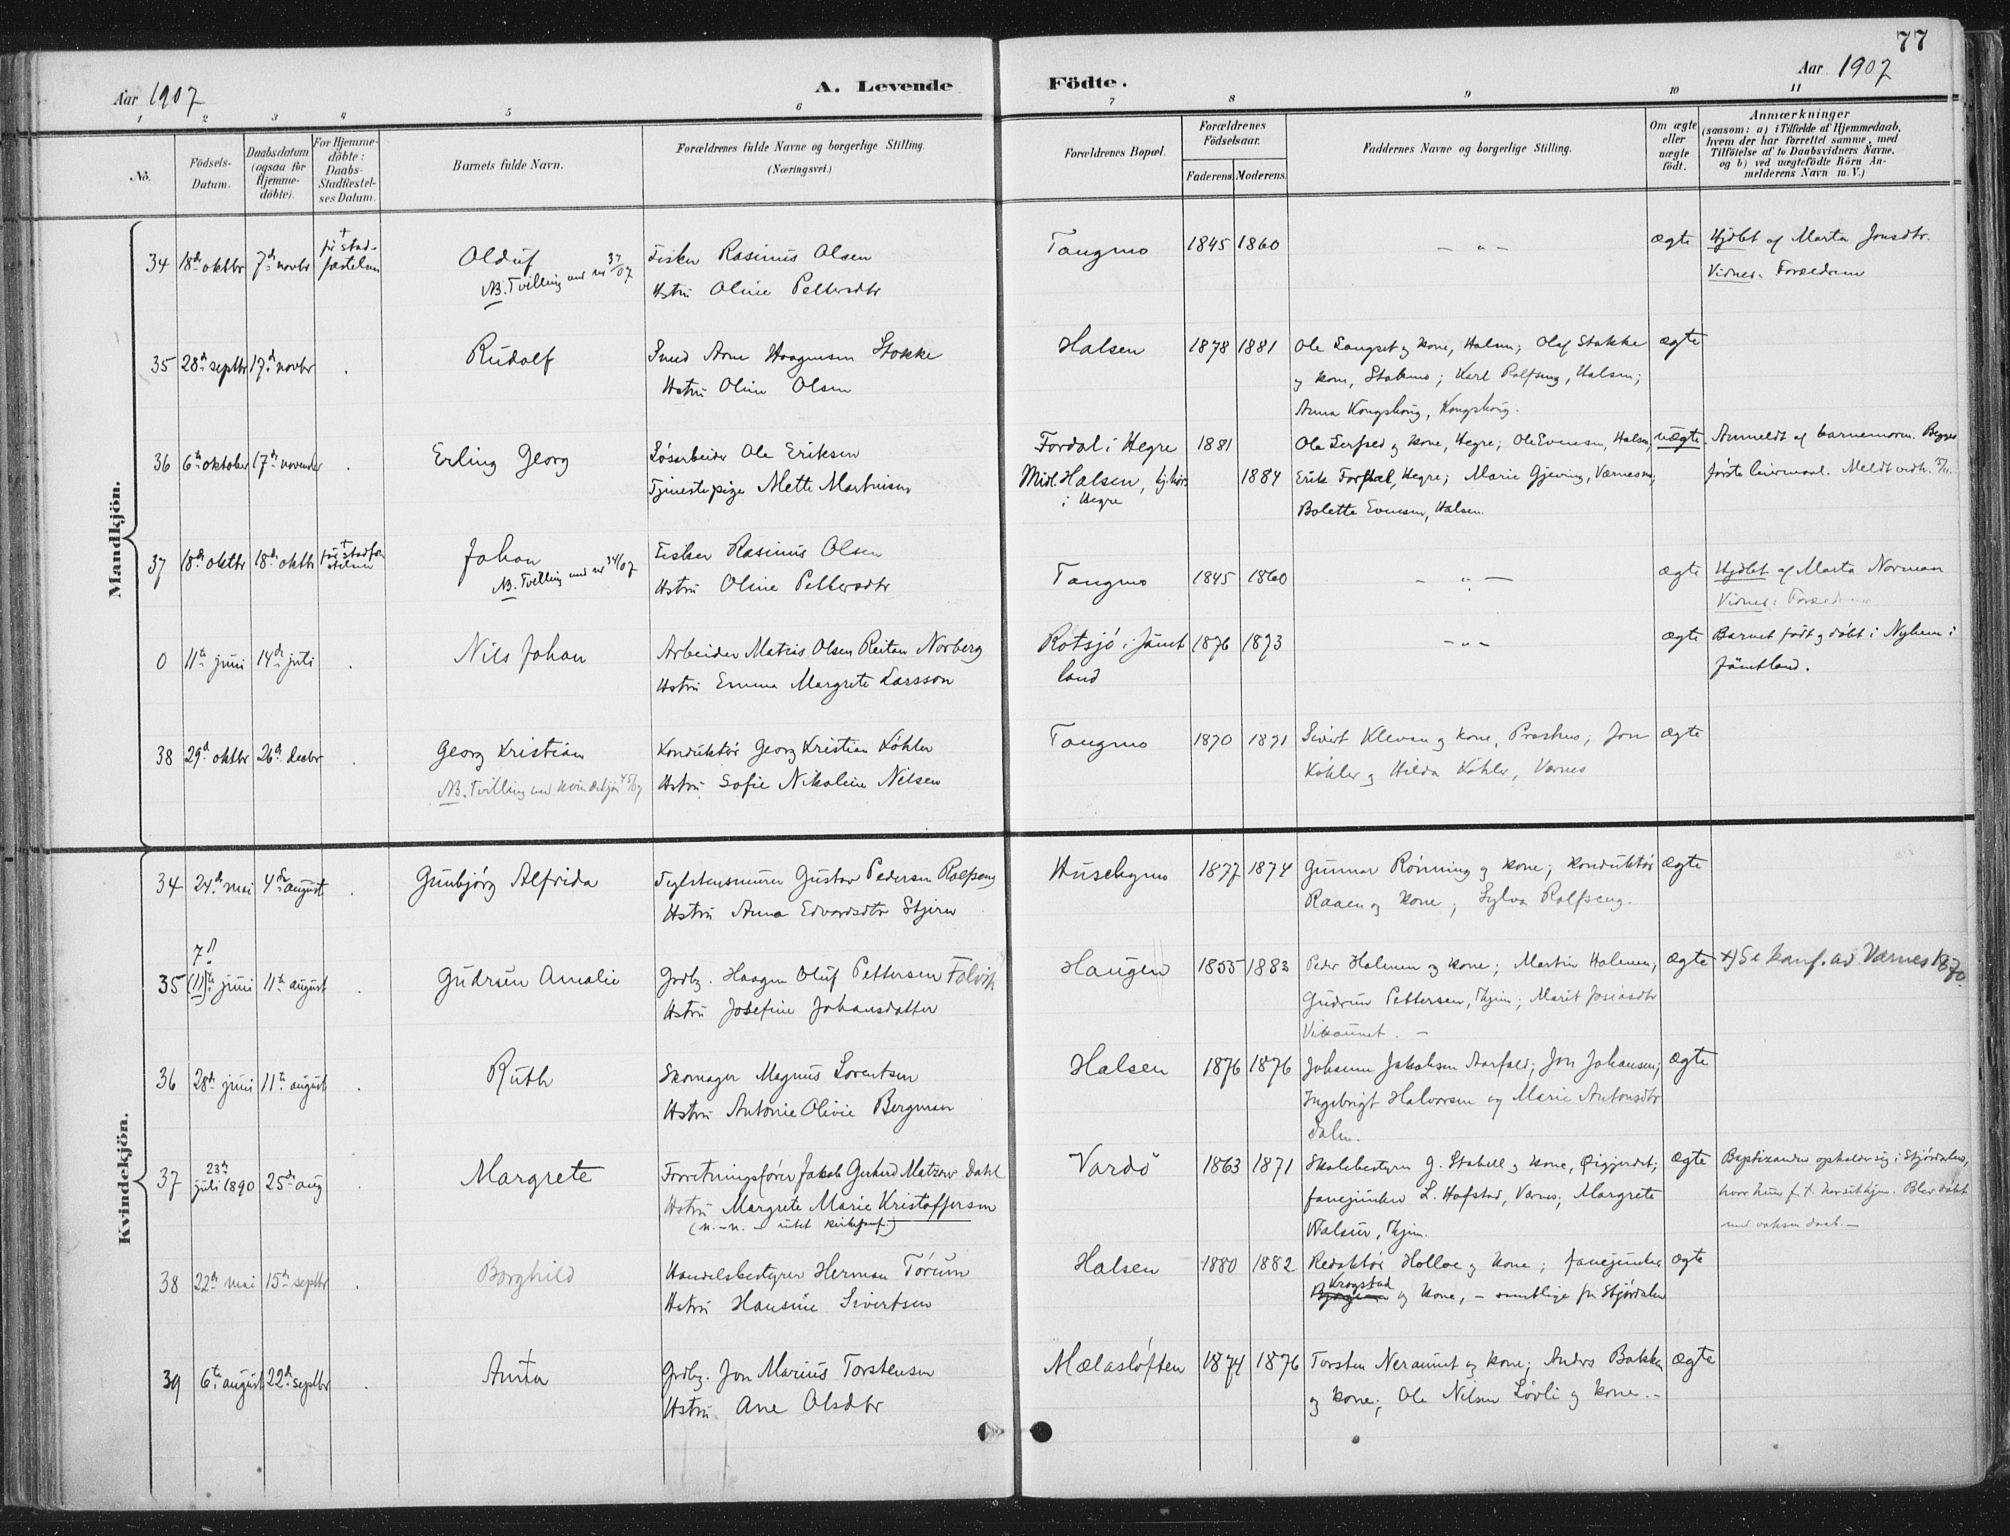 77
Aar 1907
A. Levende
Födte.
Aar 1907
1 2 3 4 5 6 7 8 9 10 11
No.
Födsels-
Datum.
Daabsdatum
(ogsaa för
Hjemme-
döbte).
For Hjemme-
döbte:
Daabs-
Stadfæstel-
ses Datum.
Barnets fulde Navn.
Forældrenes fulde Navne og borgerlige Stilling.
(Næringsvei.)
Forældrenes Bopæl.
Forældrenes
Födselsaar.
Faderens. Moderens.
Faddernes Navne og borgerlige Stilling.
Om ægte
eller
uægte
födt.
Anmærkninger
(saasom: a) i Tilfælde af Hjemmedaab,
hvem der har forrettet samme, med
Tilföielse af to Daabsvidners Navne.
og b) ved uægtefödte Börn An-
melderens Navn m. V.)
Mandkjön.
34 18de oktbr 7de novbr
Oluf
NB. Tvilling med nr 37/07
Fisker Rasimus Olsen
Hstru Oline Pettersdtr
Tangmo 1845 1860 — " — ægte
Hjdbt af Marta Jonsdtr.
Vidner: Forældrene
35 28de septbr 17de novbr . Rudolf
Smed Arne Haagensen Stokke
Hstru Oline Olsen
Halsen 1878 1881
Ole Langset og kone, Halsen; Olaf Stokke
og kone, ; Karl Rolfseng, Halsen;
Anna Kongshaug, Kongshaug.
ægte
36 6te oktober 17de november . Erling Georg
Løsarbeider Ole Eriksen
Tjenestepige Mette Martinsen
Fordal i Hegre 1881
Midl. Halsen, hj.hør. 1884
i Hegre
Ole og kone, Hegre; Ole Evensen, Halsen;
Erik Fordal, Hegre; Marie Gjeving, Værnesm;
Bolette Evensen, Halsen.
uægte
Anmeldt af barnemoren. Begges
første leiermaal. Meldt
37 18de oktbr 18de oktbr
Johan
NB. Tvilling med nr 34/07
Fisker Rasimus Olsen
Hstru Oline Pettersdtr
Tangmo 1845 1860 — " — ægte
Hjdbt af Marta Norman
Vidner: Forældrene
0 11te juni 14de juli . Nils Johan
Arbeider Matias Olsen Reitan Norberg
Hstru Emma Margrete Larsson
Rotsjö i Jämt
land
1876 1873 — " — ægte
Barnet født og døbt i Nyhem i
Jämtland.
38 29de oktbr 26de decbr . Georg Kristian
NB. Tvilling med kvindekjøn 45/07
Konduktør Georg Kristian Köhler
Hstru Sofie Nikoline Nilsen
Tangmo 1870 1871
Sivert Klevan og kone, ; Jon
Köhler og Hilda Köhler, Værnes
ægte
Kvindekjön.
34 24de mai 4de august . Gunbjørg Alfrida
Teglstensmurer Gustav Pedersen Rolfseng
Hstru Anna Edvardsdtr Stjern
Husebymo 1877 1874
Gunnar Rönning og kone; konduktør
Raaen og kone; Sylva Rolfseng.
ægte
7de
35 (11)te juni 11te august . Gudrun Amalie
Grdbr. Haagen Oluf Pettersen Falvik
Hstru Josefine Johansdatter
Haugen 1855 1883
Peder Halmen og kone; Martin Halmen;
Gudrun Pettersen, Thjem; Marit Josiasdtr
Vikaunet. —
ægte
x) Se konf. av Værnes 1870
36 28de juni 11te august . Ruth
Skomager Magnus Lorentsen
Hstru Antonie Olivie Bergman
Halsen 1876 1876
Johanna Jakobsen ; Jon Johansen;
Ingebrigt Halvorsen og Marie Antonsdtr
Dalen.
ægte
37 23de juli 1890 25de aug Margrete
Forretningsfører Jakob Gerhard Matzow Dahl
Hstru Margrete Marie Kristoffersen
Vardö 1863 1871
Skolebestyrer G. Stabell og kone, ;
fanejunker L. Hofstad, Værnes; Margrete
, Thjem.
ægte
opholder sig i Stjørdalen,
hvor hun Blev døbt
med voksen daab. —
38 22de mai 15de septbr . Borghild
Handelsbestyrer Herman Törum
Hstru Hansine Sivertsen
Halsen 1880 1882
Redaktør Holloe og kone; fanejunker
Krogstad og kone, — samtlige fra Stjørdalen
ægte
39 6te august 22de septbr . Anna
Grdbr. Jon Marius Torstensen
Hstru Ane Olsdtr
Mælasløften 1874 1876
Torsten Neraunet og kone; Anders Bakken
og kone; Ole Nilsen Løvli og kone. —
ægte